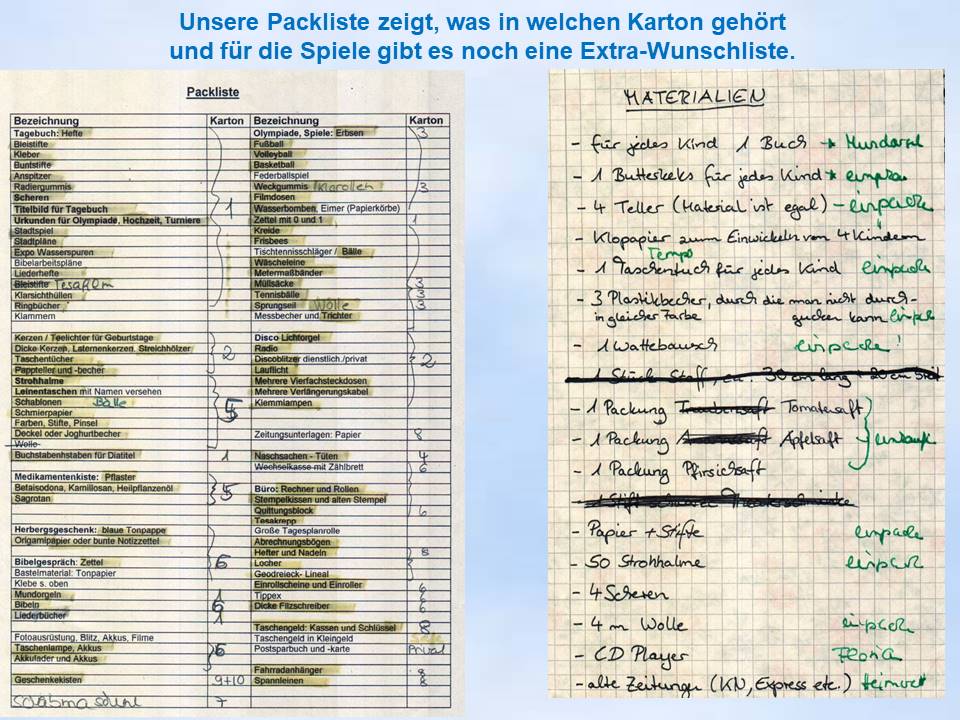 Unsere Packliste zeigt, was in welchen Karton gehört
und für die Spiele gibt es noch eine Extra-Wunschliste.
Packliste
Bezeichnung Karton
Tagebuch: Hefte
Bleistifte
Kleber
Buntstifte
Anspitzer
Radiergummis
Scheren
Titelbild für Tagebuch 1
Urkunden für Olympiade, Hochzeit, Turniere
Stadtspiel
Stadtpläne
Expo Wasserspuren
Bibelarbeitspläne
Liederhefte
Bleistifte Tesafilm
Klarsichthüllen
Ringbücher
Klammern
Kerzen / Teelichter für Geburtstage
Dicke Kerzen, Laternenkerzen, Streichhölzer 2
Taschentücher
Pappteller und -becher
Strohhalme
Leinentaschen mit Namen versehen
Schablonen Bälle 5
Schmierpapier
Farben, Stifte, Pinsel
Deckel oder Joghurtbecher
Wolle
Buchstabenhstaben für Diatitel 1
Medikamentenkiste: Pflaster
Betaisodona, Kamillosan, Heilpflanzenöl 5
Sagrotan
Herbergsgeschenk: blaue Tonpappe
Origamipapier oder bunte Notizzettel
Bibelgespräch: Zettel 6
Bastelmaterial: Tonpapier
Klebe s. oben
Mundorgeln 1
Bibeln 6
Liederbücher 1
Fotoausrüstung, Blitz, Akkus, Filme
Taschenlampe, Akkus 6
Akkulader und Akkus
Geschenkekisten 9+10
7
Bezeichnung Karton
Olympiade, Spiele: Erbsen 3
Fußball
Volleyball
Basketball
Federballspiel
Weckgummis Klorollen 3
Filmdosen
Wasserbomben, Eimer (Papierkörbe)
Zettel mit 0 und 1 1
Kreide
Frisbees
Tischtennisschläger / Bälle
Wäscheleine
Metermaßbänder
Müllsäcke 3
Tennisbälle 3
Sprungseil Wolle 3
Messbecher und Trichter
Disco Lichtorgel
Radio
Discoblitzer dienstlich./privat 2
Lauflicht
Mehrere Vierfachsteckdosen
Mehrere Verlängerungskabel
Klemmlampen
Zeitungsunterlagen: Papier 8
Naschsachen - Tüten 4
Wechselkasse mit Zählbrett 6
Büro: Rechner und Rollen
Stempelkissen und alten Stempel
Quittungsblock 6
Tesakrepp
Große Tagesplanrolle
Abrechnungsbögen
Hefter und Nadeln 8
Locher
Geodreieck- Lineal
Einrollscheine und Einroller 6
Tippex 6
Dicke Filzschreiber 6
Taschengeld: Kassen und Schlüssel 8
Taschengeld in Kleingeld
Postsparbuch und -karte Privat
Fahrradanhänger 8
Spannleinen 8
MATERIALIEN
- für jedes Kind 1 Buch → Mundorgel
- 1 Butterkeks für jedes Kind
- 4 Teller (Material ist egal) - einpacken
- Klopapier zum Einwickeln von 4 Kindern
Tempo
- 1 Taschentuch für jedes Kind einpacken
- 3 Plastikbecher, durch die man nicht durch-
in gleicher Farbe gucken kann
- 1 Wattebausch einpacken!
1 Stück Stoff, ca. 30 cm lang + 20 cm breit
- 1 Packung Traubensaft Tomatensaft
- 1 Packung Apfelsaft einkaufen
- 1 Packung Pfirsichsaft
- Papier + Stifte einpacken
- 50 Strohhalme einpacken
- 4 Scheren
- 4 m Wolle einpacken
- CD Player
- alte Zeitungen (KN, Express etc.)